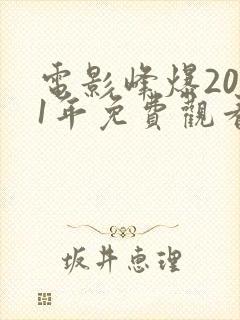 電影峰爆202
1年免費觀看
坂井惠理